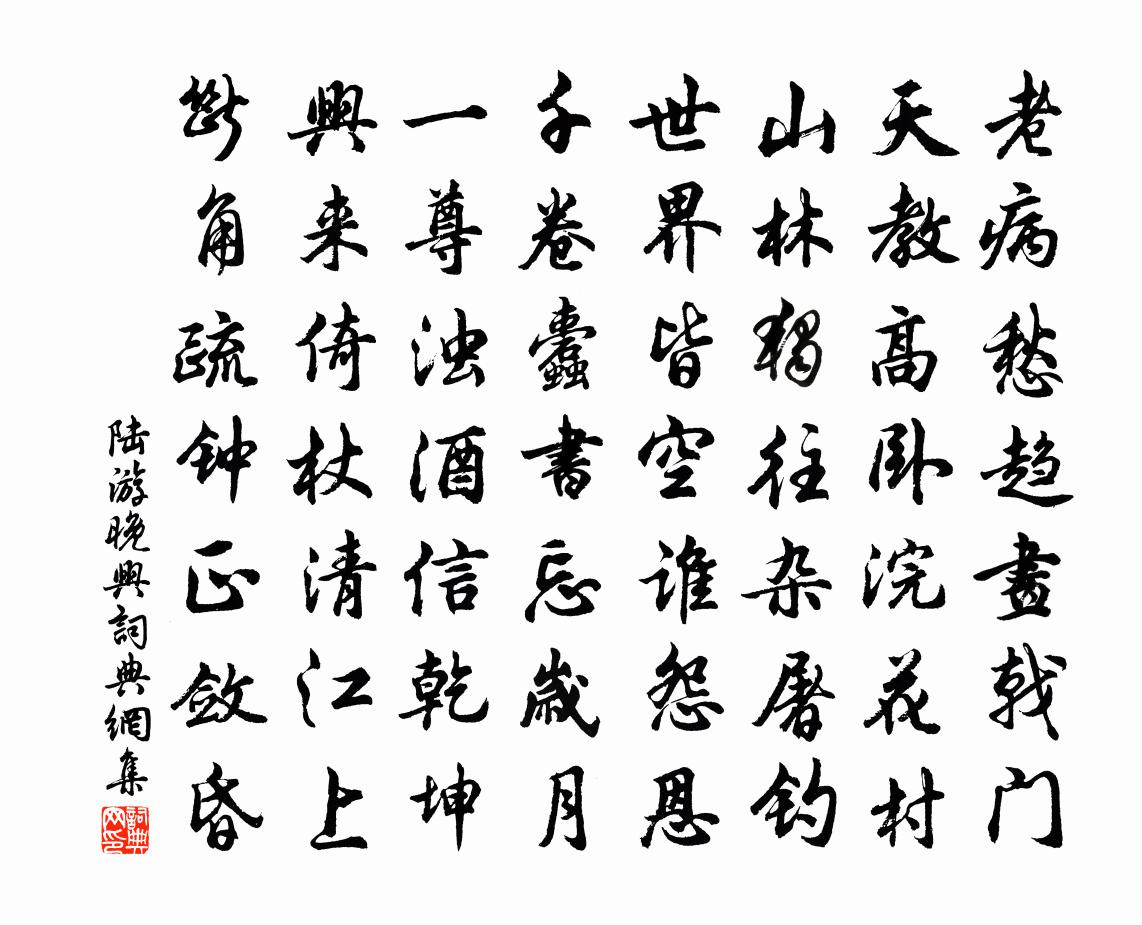 老病愁趋畫戟门
天教高卧浣花村
山林獨往杂屠钓
世界皆空谁怨恩
千卷蠹書忘歲月
一尊浊酒信乾坤
興来倚杖清江上
斷角疏钟正斂昏
陆游晚興詞典網集
詞典网印